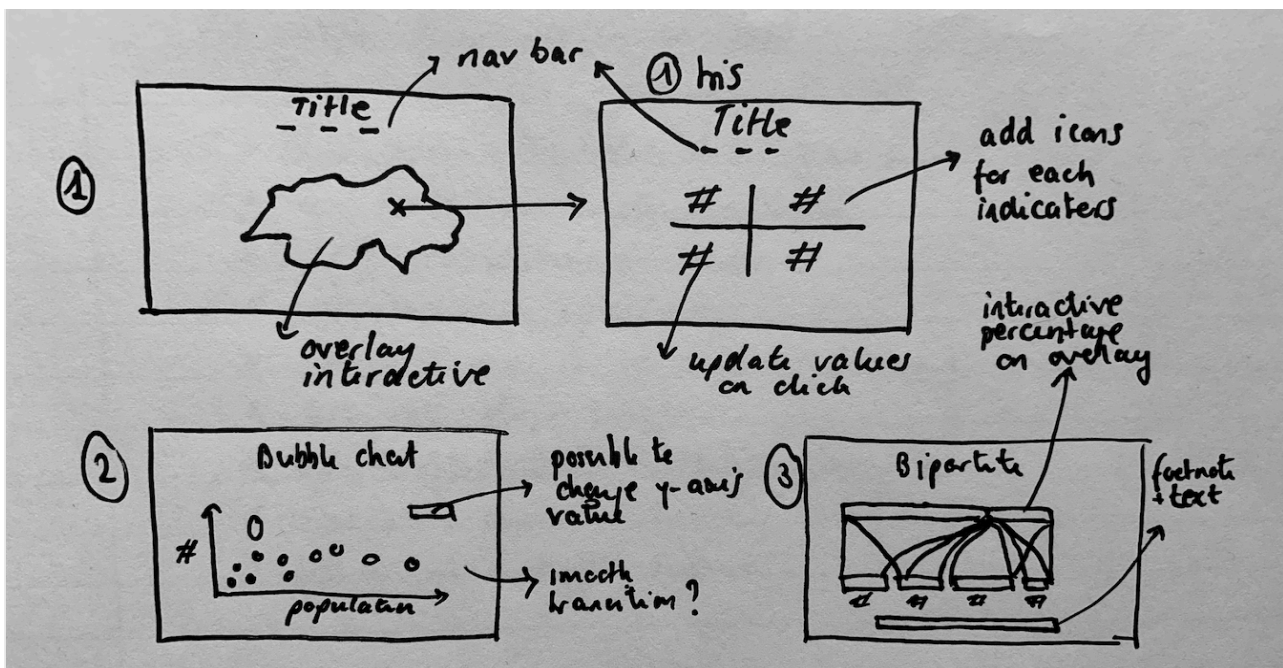 nav bar
① bis
Title
Title
add icons
for each
indicaters
①
# #
# #
overlay
interactive
update values
on click
interactive
percentage
on overlay
②
Bubble chart
possible to
change y-axis
value
#
population
smooth
transition?
③
Bipartite
footnote
+ text
# # # #